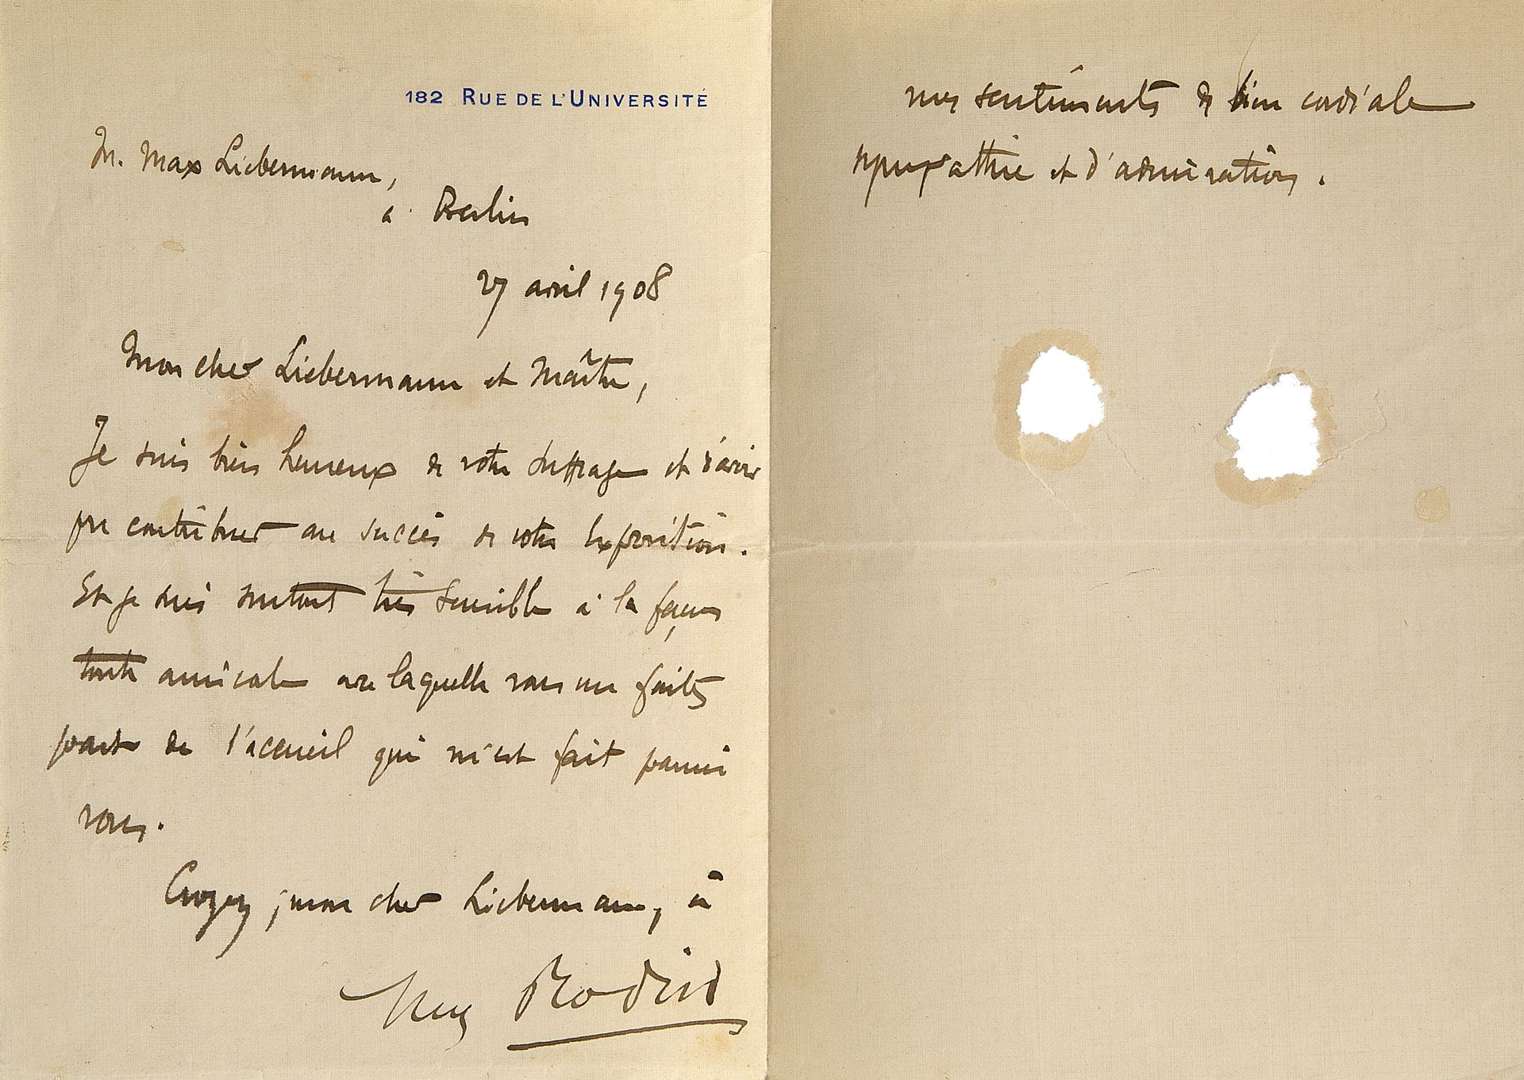 182 RUE DE L'UNIVERSITÉ
M. Max Liebermann,
à Berlin
27 avril 1908
Mon cher Liebermann et Maître,
Je suis bien heureux de votre suffrage et d'avoir
pu contribuer au succès de votre Exposition.
Et je suis surtout très sensible à la façon
toute amicale avec laquelle vous me faites
part de l'accueil qui m'est fait parmi
vous.
Croyez, mon cher Liebermann, à
Aug Rodin
mes sentiments de bien cordiale
sympathie et d'admiration.